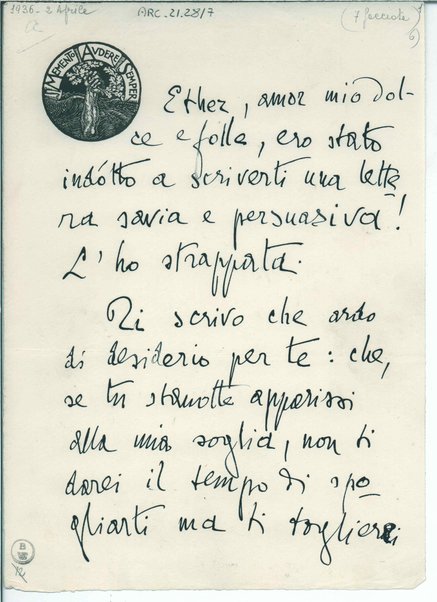 1936-2 Aprile
ARC.21.28/7
(7 facciate)
MEMENTO AVDERE SEMPER
Ether, amor mio dol-
ce e folle, ero stato
indótto a scriverti una lette-
ra savia e persuasiva!
L'ho strappata.
Ti scrivo che ardo
di desiderio per te: che,
se tu stanotte apparissi
alla mia soglia, non ti
darei il tempo di spo-
gliarti ma ti toglierei